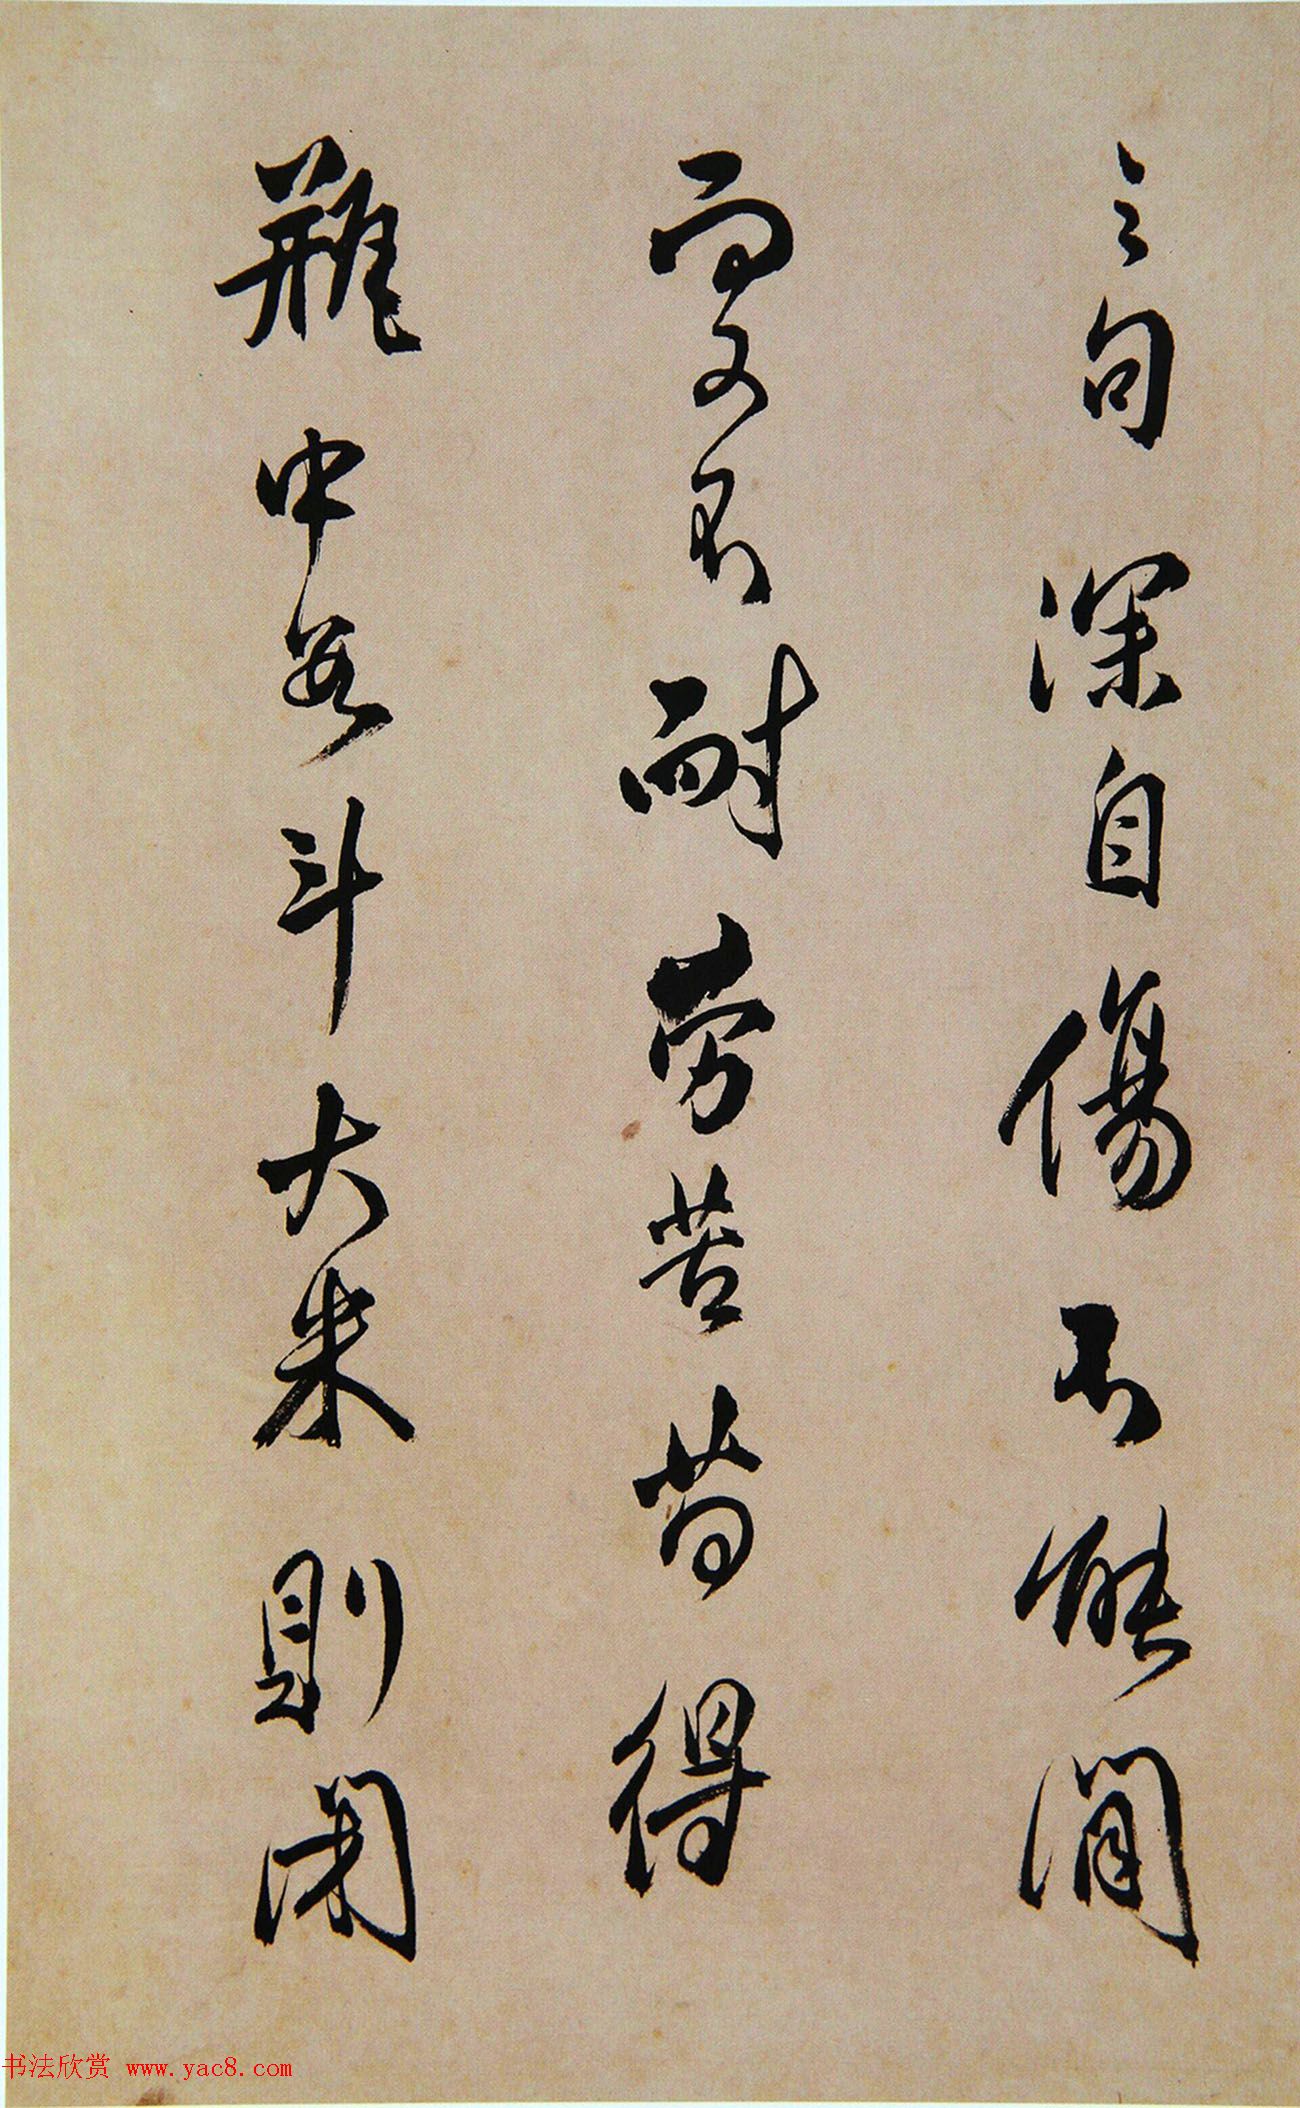 之句深自傷不能閒
而又不耐勞苦苟得
瓶中無斗大米則閉
书法欣赏 www.yac8.com